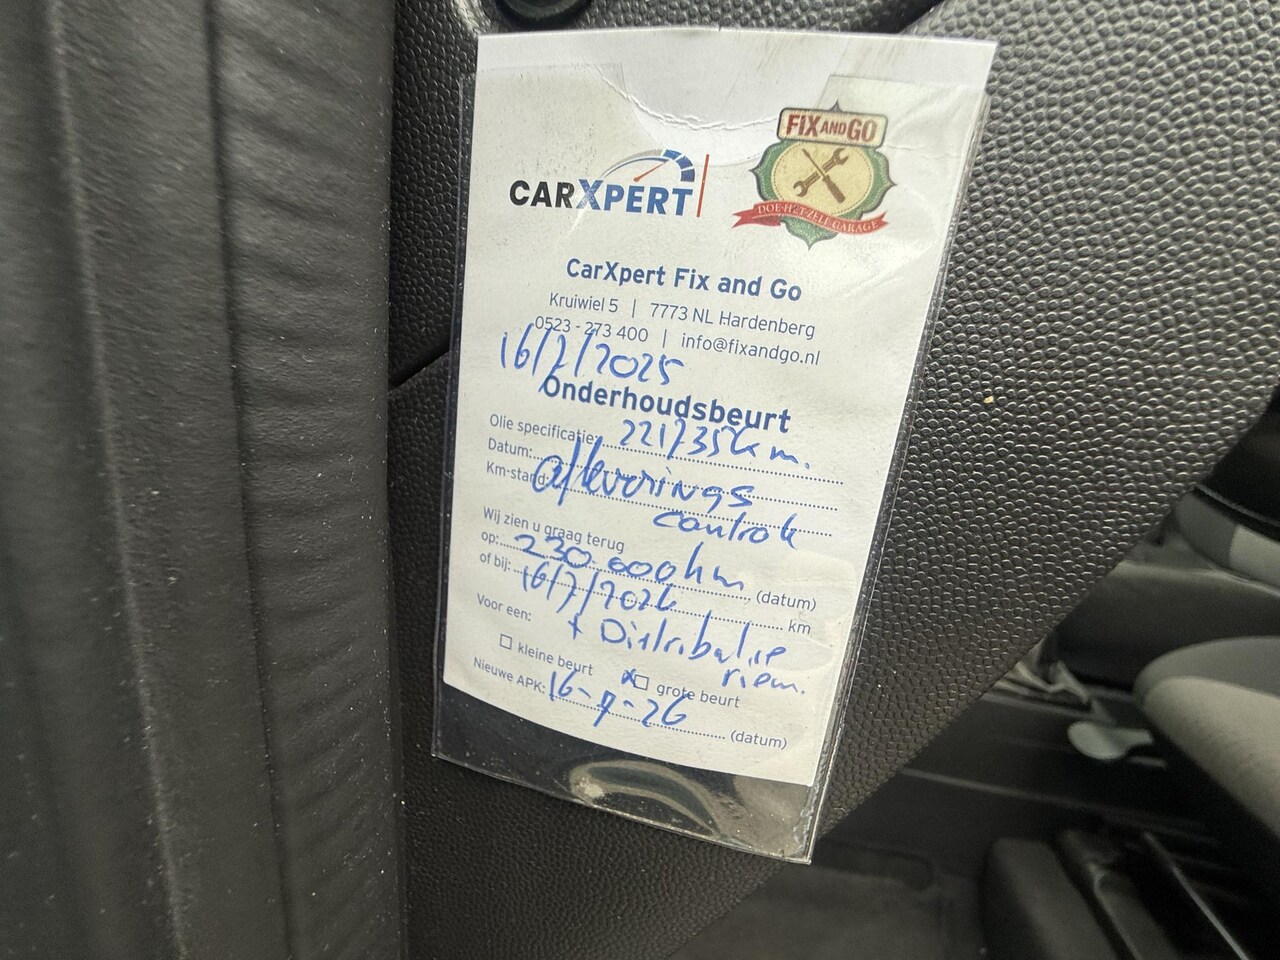 FIX AND GO
CARXPERT
DOE-HET-ZELF GARAGE
CarXpert Fix and Go
Kruiwiel 5 | 7773 NL Hardenberg
0523 - 273 400 | info@fixandgo.nl
16/7/2025
Onderhoudsbeurt
Olie specificatie: 221735 km.
Datum:
Km-stand: afleverings
controle
Wij zien u graag terug
op: 230.000 km (datum)
of bij: 16/7/2026 km
Voor een: + Distributie
riem.
kleine beurt x grote beurt
Nieuwe APK: 16-7-26 (datum)